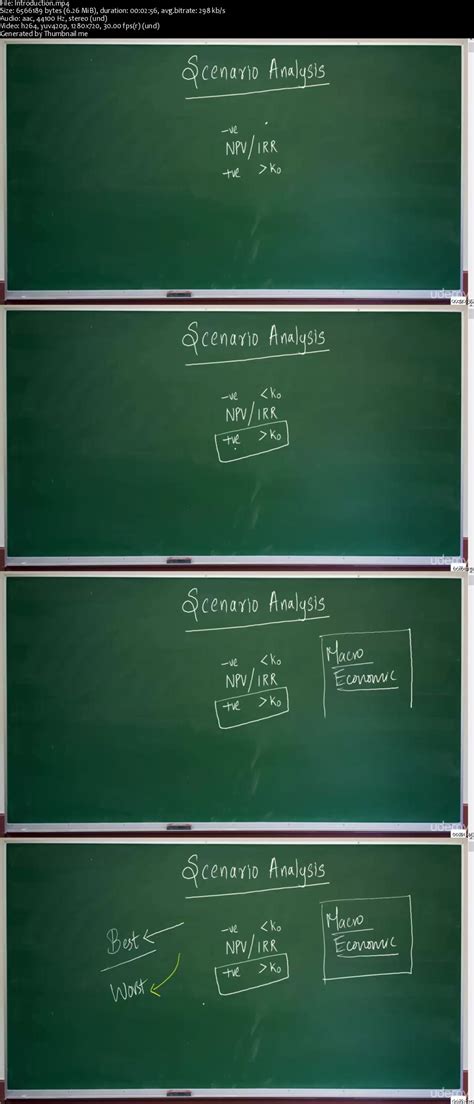 File: Introduction.mp4
Size: 6566189 bytes (6.26 MiB), duration: 00:02:56, avg.bitrate: 298 kb/s
Audio: aac, 44100 Hz, stereo (und)
Video: h264, yuv420p, 1280x720, 30.00 fps(r) (und)
Generated by Thumbnail me
Scenario Analysis
-ve
NPV/IRR
+ve >K0
udemy
Scenario Analysis
-ve <K0
NPV/IRR
+ve >K0
udemy
Scenario Analysis
-ve <K0
NPV/IRR
+ve >K0
Macro
Economic
udemy
Scenario Analysis
Best
Worst
-ve <K0
NPV/IRR
+ve >K0
Macro
Economic
udemy